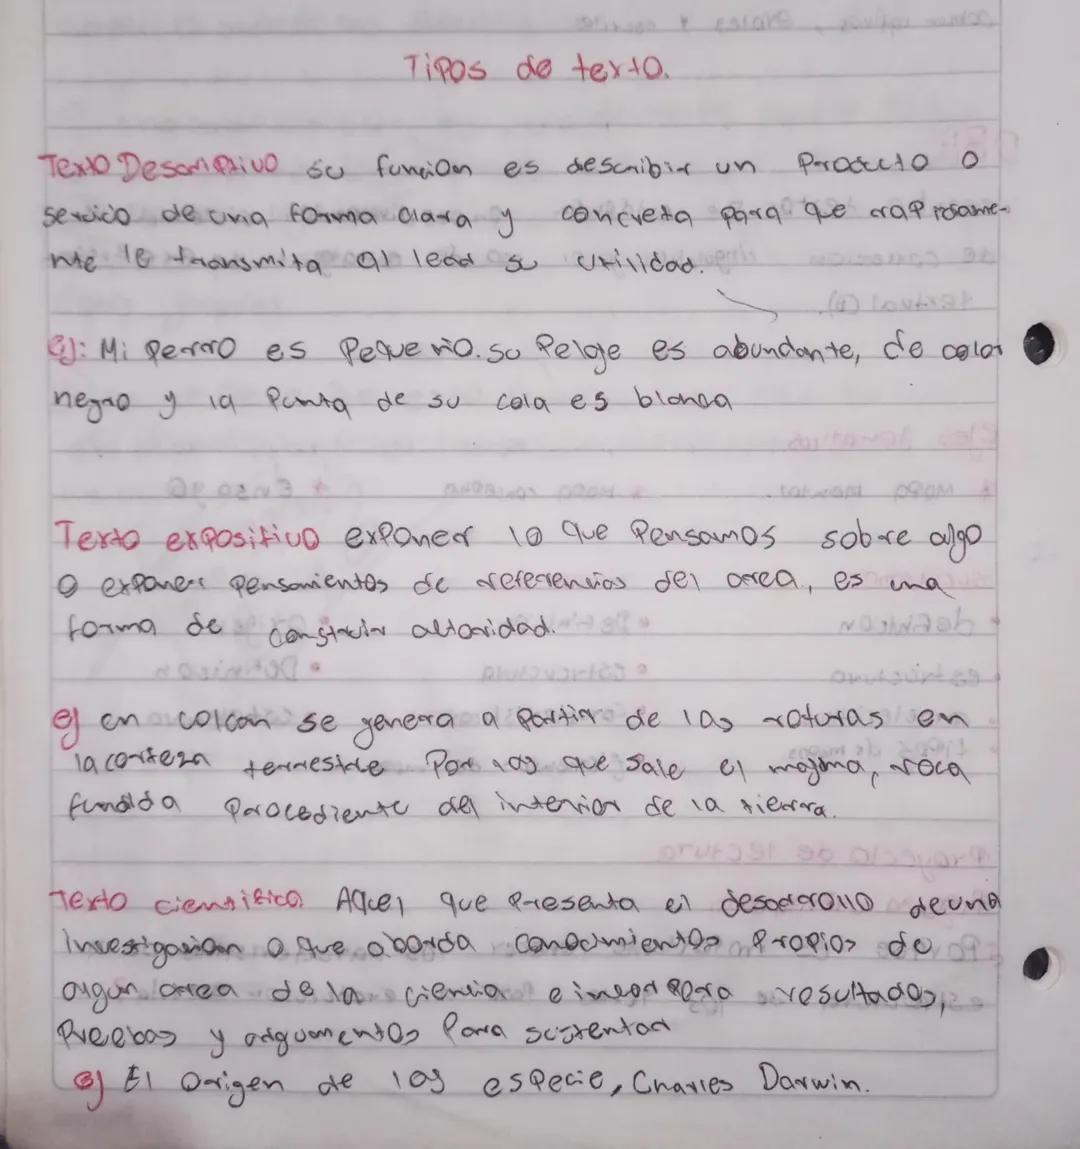 Tipos de texto.
Texto Descriptivo su funcion es describir un Producto o
servicio de una forma clara y concreta para que
le transmita al lead su utilidad.
Ej: Mi perro es Pequeño. su Pelaje es abundante, de color
negro y la Punta de su cola es blanca
Texto expositivo exponer lo que Pensamos sobre algo
o exponer pensamientos de referencias del area, es una
forma de construir altoridad.
ej en colcan se genera a partir de las roturas en
la corteza terrestre Por las que sale el magma, roca
fundida Procediente del interior de la tierra.
Texto cientifico Aquel que Presenta el desarrollo de una
Investigacion o que aborda conocimientos Propios de
algun area de la ciencia e resultados,
Pruebas y argumentos Para sustentar
ej El Origen de las especie, Charles Darwin.